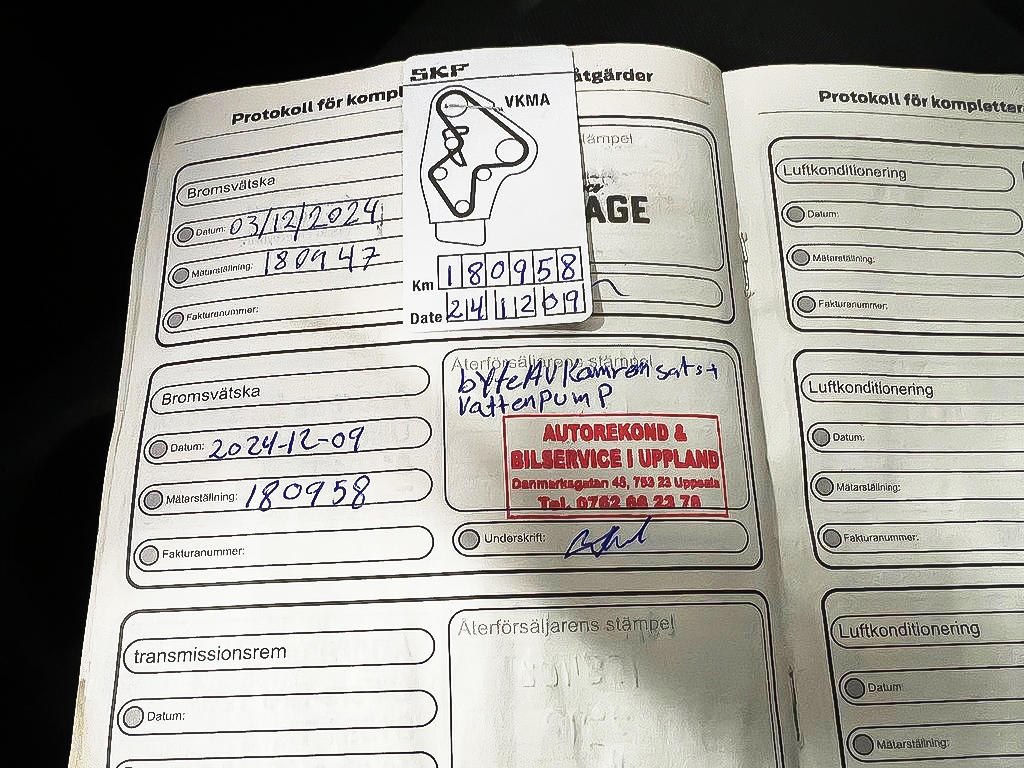 Protokoll för kompl
åtgärder
SKF
VKMA
Km 180958
Date 24 12 09
Bromsvätska
Datum: 03/12/2024
Mätarställning: 180947
Fakturanummer:
stämpel
AGE
Bromsvätska
Datum: 2024-12-09
Mätarställning: 180958
Fakturanummer:
Återförsäljarens stämpel
byte AV Kamremsats +
Vattenpump
AUTOREKOND &
BILSERVICE I UPPLAND
Danmarksgatan 48, 753 23 Uppsala
Tel. 0762 66 23 78
Underskrift:
transmissionsrem
Datum:
Återförsäljarens stämpel
Protokoll för kompletter
Luftkonditionering
Datum:
Mätarställning:
Fakturanummer:
Luftkonditionering
Datum:
Mätarställning:
Fakturanummer:
Luftkonditionering
Datum:
Mätarställning: